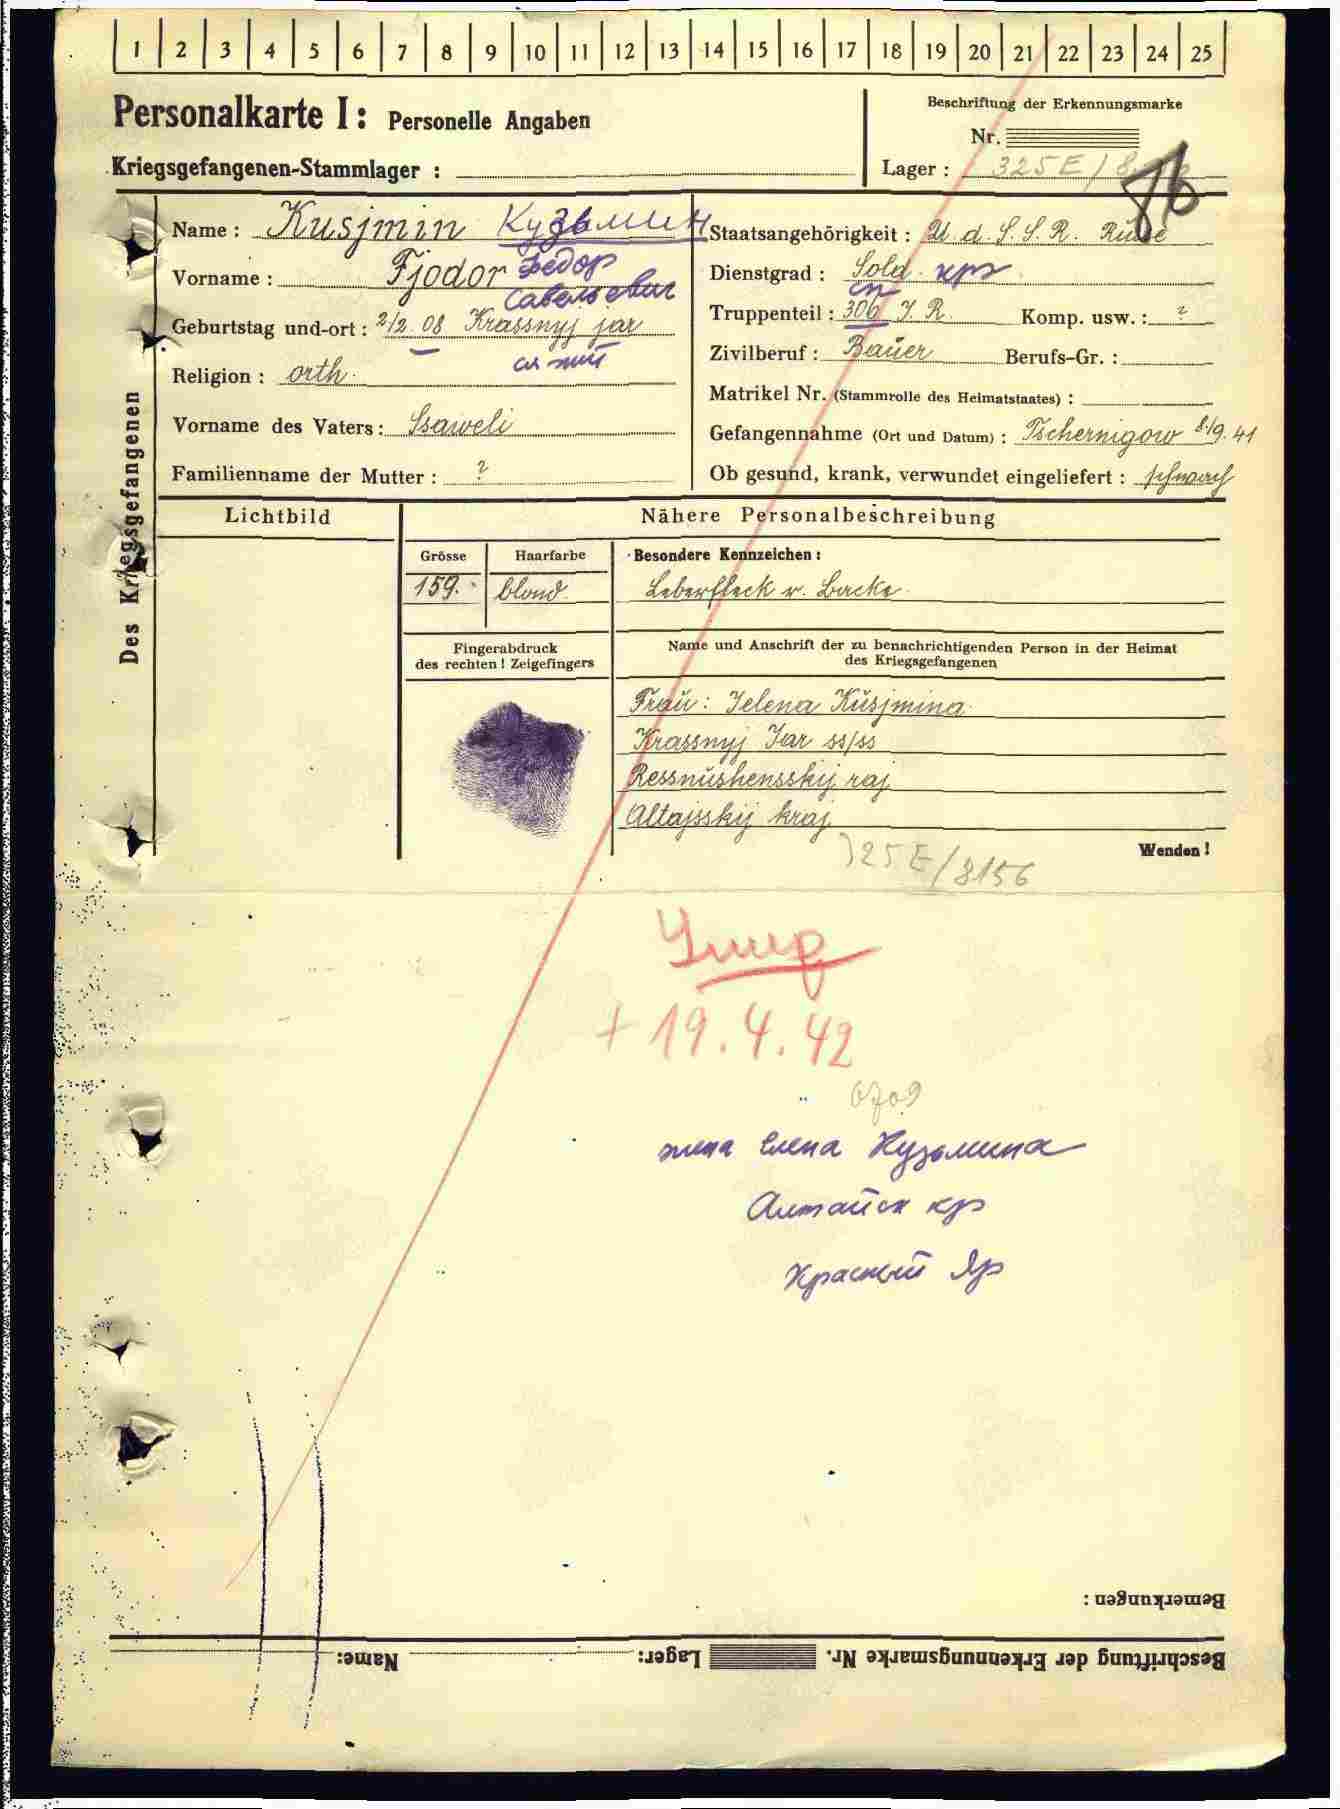 1 2 3 4 5 6 7 8 9 10 11 12 13 14 15 16 17 18 19 20 21 22 23 24 25
Personalkarte I: Personelle Angaben
Beschriftung der Erkennungsmarke
Nr.
Kriegsgefangenen-Stammlager :
Lager : 325E/8
Des Kriegsgefangenen
Name : Kusjmin Кузьмин
Vorname : Fjodor Федор
Савельевич
Geburtstag und-ort : 2/2. 08 Krassnyj jar
Religion : orth.
Vorname des Vaters : Ssaweli
Familienname der Mutter : ?
Staatsangehörigkeit : U. d. S. S. R. Russe
Dienstgrad : Sold. кр
сп
Truppenteil : 306 J. R. Komp. usw. : ?
Zivilberuf : Bauer Berufs-Gr. :
Matrikel Nr. (Stammrolle des Heimatstaates) :
Gefangennahme (Ort und Datum) : Tschernigow 8/9. 41
Ob gesund, krank, verwundet eingeliefert : schwach
Lichtbild
Nähere Personalbeschreibung
Grösse Haarfarbe Besondere Kennzeichen :
159. blond. Leberfleck r. Backe.
Fingerabdruck
des rechten ! Zeigefingers
Name und Anschrift der zu benachrichtigenden Person in der Heimat
des Kriegsgefangenen
Frau : Jelena Kusjmina
Krassnyj Jar ss/ss
Ressnushensskij raj
Altajsskij kraj
Wenden !
325 E/8156
Умер
+ 19. 4. 42
0709
жена Елена Кузьмина
Алтайск кр
Красный Яр
Bemerkungen :
Beschriftung der Erkennungsmarke Nr. Lager: Name: